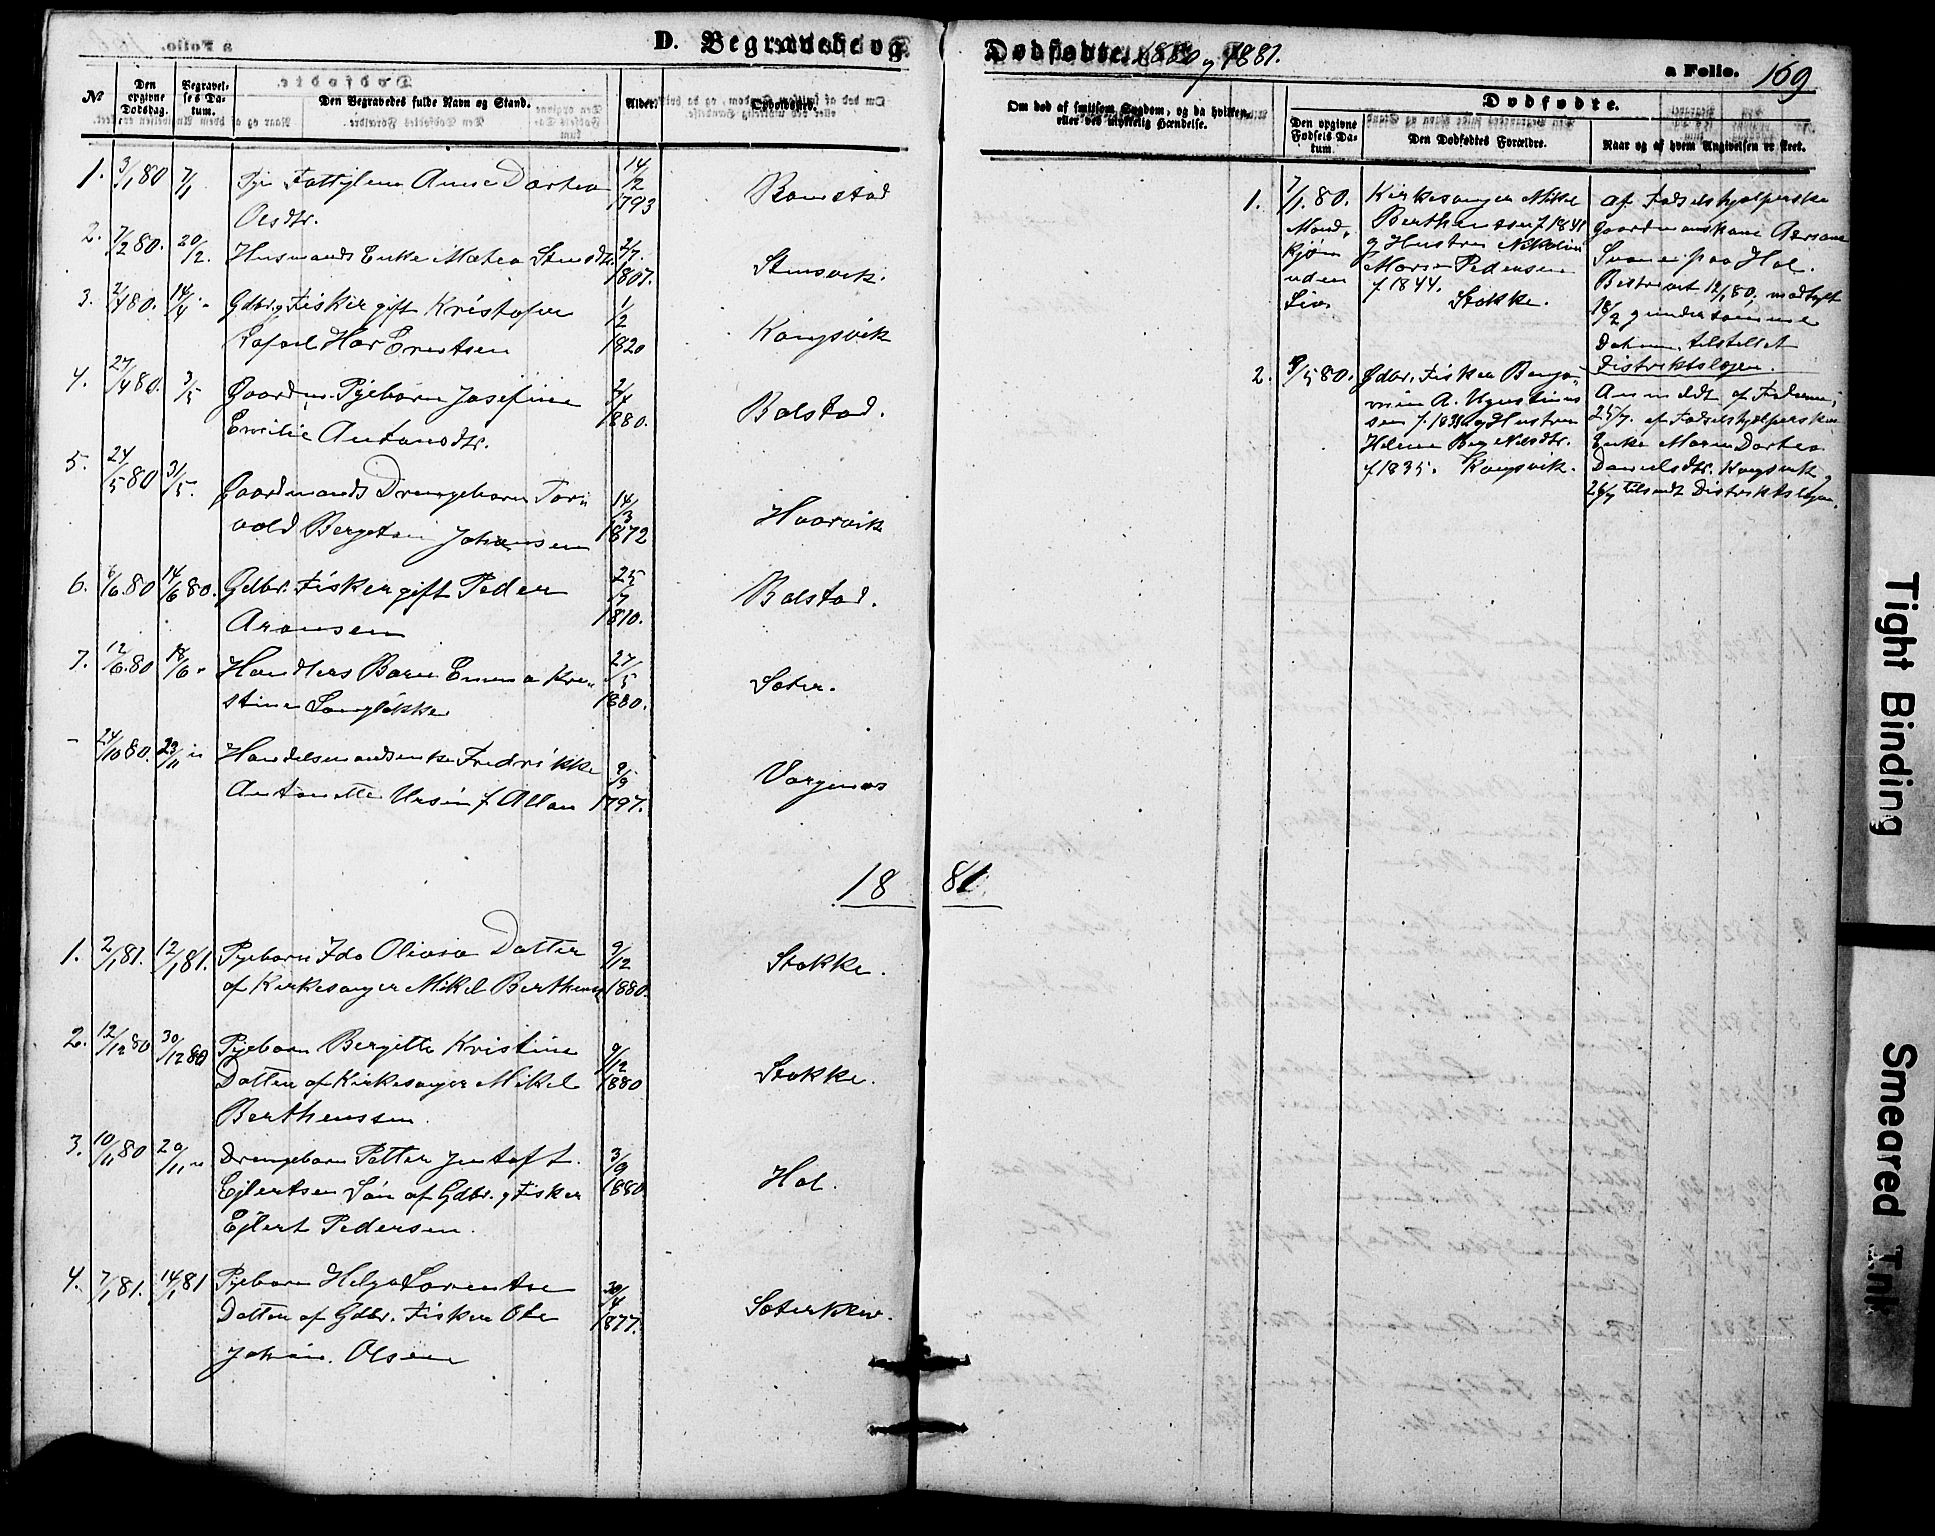 D. Begravede og Dødfødte. 1880 og 1881.
a Folio. 169
№
Den opgivne Dødsdag.
Begravelses Datum.
Den Begravedes fulde Navn og Stand.
Alder.
Opholdssted.
Om død af smitsom Sygdom, og da hvilken, eller ved ulykkelig Hændelse.
Dødfødte.
Den opgivne Fødsels Datum.
Den Dødfødtes Forældre.
Naar og af hvem Angivelsen er skeet.
1. 3/1 80 7/1 Pige Fattiglem Anne Dortea
Olsdtr. 14/2 1793
2. 7/2 80. 20/2. Husmands Enke Matea Stensdtr. 2/7. 1807. Stensvik
3. 2/4 80. 14/4 " Gdbr. og Fisker gift Kristofer
Rafael Har Erentsen 1/2 1820 Kongsvik
4. 27/4 80. 3/5 Gaardm. Pigebarn Josefine
Emilie Antonsdtr. 2/4 1880. Bolstad.
5. 24/5 80 31/5. Gaardmands Drengebarn Tor-
vald Bergetin Johansen 14/3 1872 Haarvik
6. 6/6. 80 14/6 80. Gdbr. Fisker gift Peder
Aronsen 25/7 1810. Bolstad.
7. 12/6. 80 18/6 " Handlers Barn Emma Kri-
stine Langløkke 27/5 1880. Sæter.
- 24/10 80. 23/11 " Handelsmandsenke Fredrikke
Antonette Ursin f. Allan 9/9 1797.
1881
1. 2/1 81. 12/1 81. Pigebarn Ida Olivia Datter
af Kirkesanger Mikal Berthensen 9/12 1880. Stokke.
2. 12/12 80 30/12 80 Pigebarn Bergitte Kristine
Datter af Kirkesanger Mikal
Berthenssen 9/12 1880 Stokke.
3. 10/11 80 20/11 " Drengebarn Petter Justoft
Ejlertsen Søn af Gdbr. og Fisker
Ejlert Pedersen. 3/9 1880 Hol.
4. 7/1 81. 14/1 81 Pigebarn Helga Lorentse
Datter af Gdbr. Fisker Ole
Johan. Olsen 30/4 1877.
1. 7/1. 80.
Mand-
kjøn
uden
Liv.
Kirkesanger Mikal
Berthensen f. 1841
og Hustru Nikoline
Maren Pedersen
f. 1844.
Stokke.
af Fødselshjælperske
Gaardmandskone
paa Hol.
Bestræt 12/1 80; modtaget
18/2 og under samme
Datum tilstillet
Distriktslægen.
2. 9/5 80.
Gdbr. Fisker Benja-
min A. Agustinus
sen f. 1838 og Hustru
Helene Berg Nilsdtr.
f. 1835. Kongsvik.
Anmeldt af Faderen;
25/7. af Fødselshjælperske
Enke Maren Dortea
Danielsdtr. Kongsvik,
26/7 tilsendt Distriktslægen.
Tight Binding
Smeared Ink